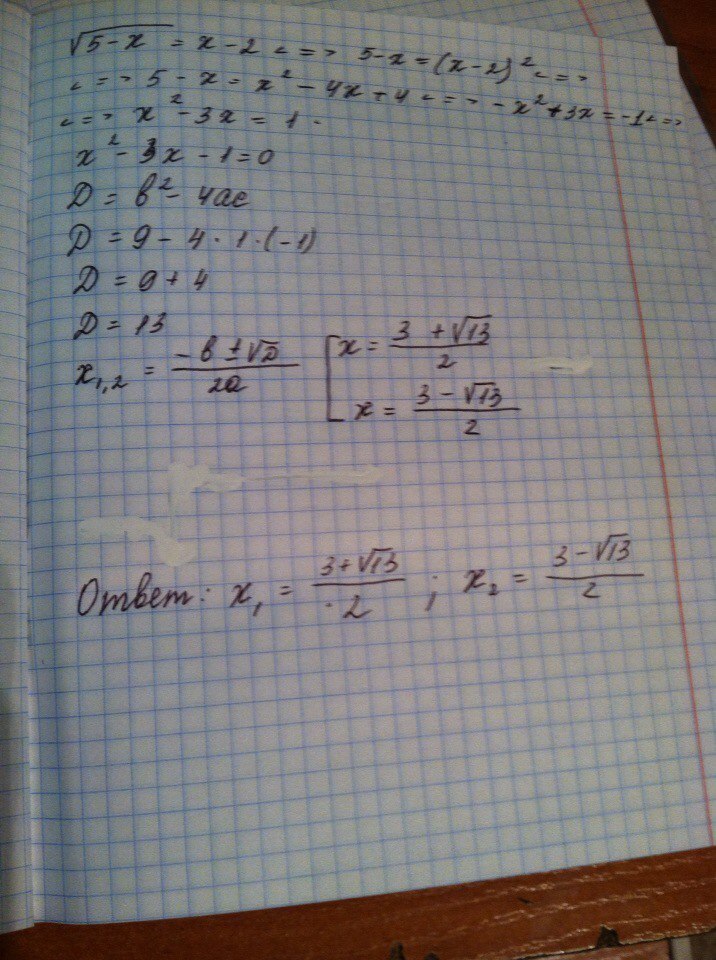 √5-x = x-2 <=> 5-x = (x-2)² <=>
<=> 5-x = x² - 4x + 4 <=> -x² + 3x = -1 <=>
<=> x² - 3x = 1.
x² - 3x - 1 = 0
D = b² - 4ac
D = 9 - 4 · 1 · (-1)
D = 9 + 4
D = 13
x₁,₂ = (-b ± √D)/(2a) [ x = (3 + √13)/2
x = (3 - √13)/2
Ответ: x₁ = (3+√13)/2 ; x₂ = (3-√13)/2